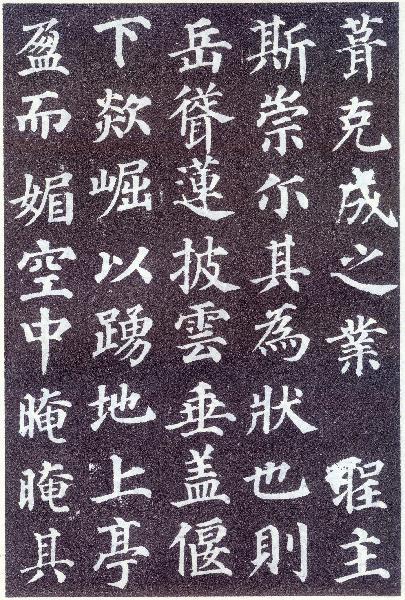 葺克成之業　聖主
斯崇尒其為狀也則
岳聳蓮披雲垂盖偃
下欻崛以踴地上亭
盈而媚空中晻晻其